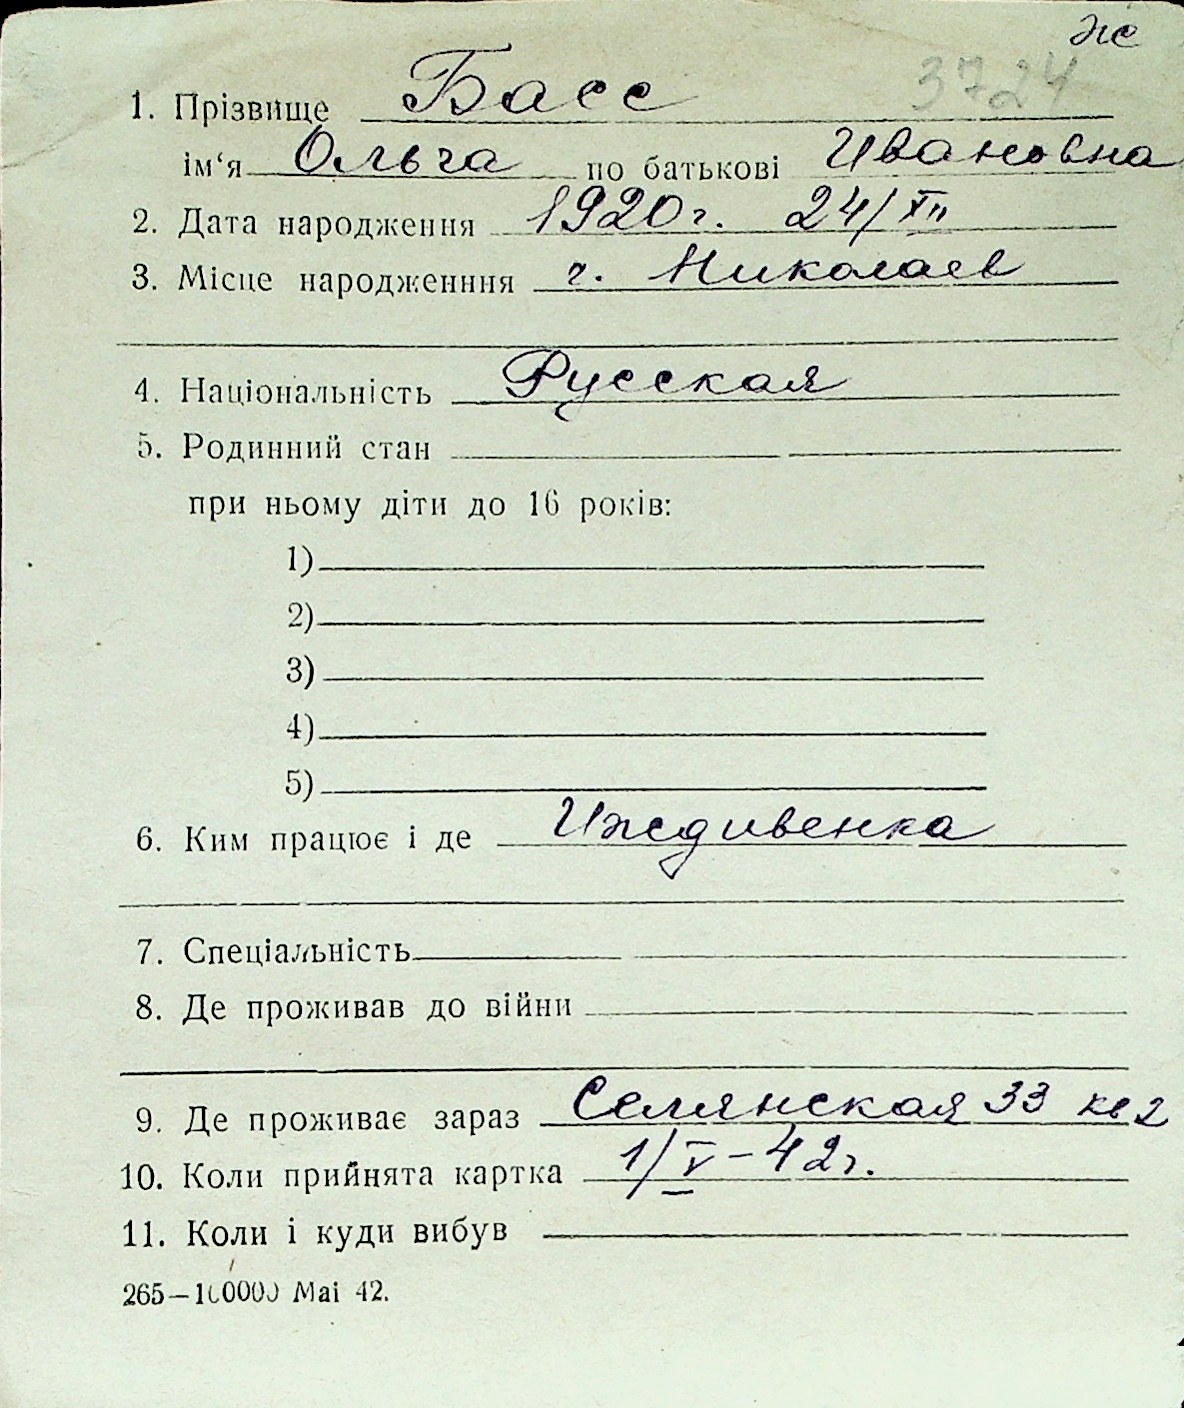 же
3724
1. Прізвище Басс
ім‘я Ольга по батькові Ивановна
2. Дата народження 1920 г. 24/XII
3. Місце народженння г. Николаев
4. Національність Русская
5. Родинний стан
при ньому діти до 16 років:
1)
2)
3)
4)
5)
6. Ким працює і де Иждивенка
7. Спеціальність
8. Де проживав до війни
9. Де проживає зараз Селянская 33 кв 2
10. Коли прийнята картка 1/V – 42 г.
11. Коли і куди вибув
265–100000 Маі 42.